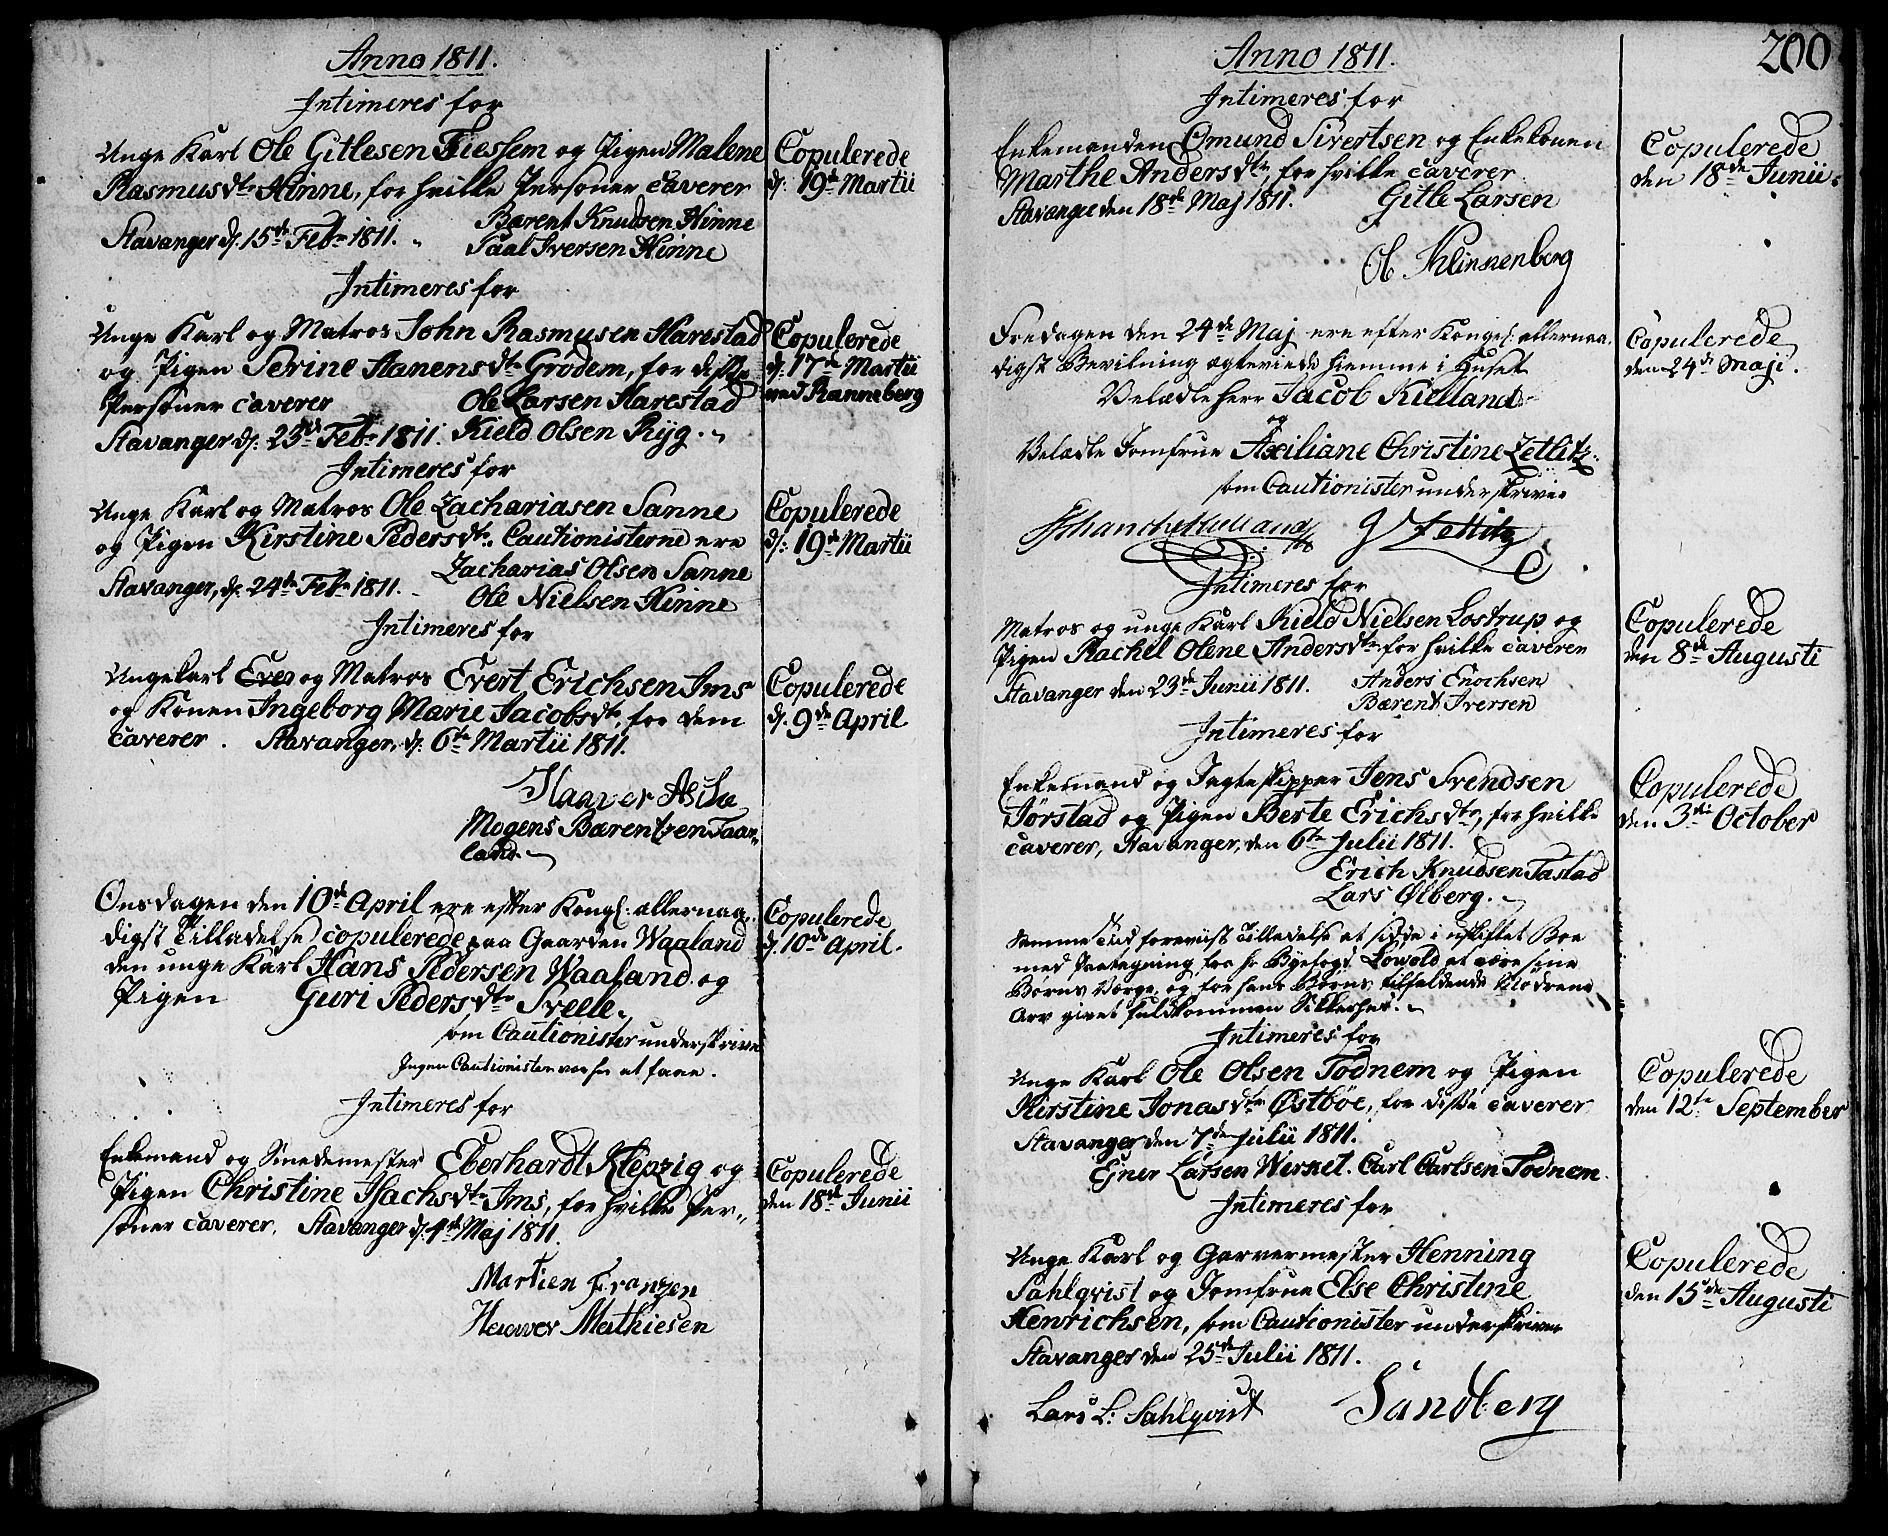 Anno 1811.
Intimeres for
Unge Karl Ole Gitlesen Tiessem og Pigen Malene
Rasmusdtr Hinne, for hvilke Personer caverer
Bærent Knudsen Hinne
Stavanger d: 15de Febr 1811.
Paal Iversen Hinne
Copulerede
d: 19de Martii
Intimeres for
Unge Karl og Matros John Rasmusen Harestad
og Pigen Serine Aanensdtr Grødem, for disse
Personer caverer Ole Larsen Harestad
Stavanger d: 23de Febr 1811. Kield Olsen Ryg.
Copulerede
d: 17de Martii
ved Ranneberg
Intimeres for
Unge Karl og Matros Ole Zachariasen Sanne
og Pigen Kirstine Pedersdtr. Cautionisterne ere
Zacharias Olsen Sanne
Stavanger, d: 24de Febr 1811.
Ole Nielsen Hinne
Copulerede
d: 19de Martii
Intimeres for
Ungekarl Ever og Matros Evert Erichsen Ims
og Konen Ingeborg Marie Jacobsdtr, for dem
caverer. Stavanger, d: 6te Martii 1811.
Haaver Asche
Mogens Bærentzen Taan-
land.
Copulerede
d: 9de April
Onsdagen den 10de April ere efter Kongl: allernaa-
digst Tilladelse copulerede paa Gaarden Waaland
den unge Karl Hans Pedersen Waaland og
Pigen Guri Pedersdtr Svelle.
som Cautionister underskrive
Ingen Cautionister var her at faae.
Copulerede
d: 10de April.
Intimeres for
Enkemand og Smedemester Eberhardt Klepzig og
Pigen Christine Isachsdtr Ims, for hvilke Per-
soner caverer. Stavanger d: 4de Maj 1811.
Martien Franzen
Haaver Mathiesen
Copulerede
den 18de Junii
200
Anno 1811.
Intimeres for
Enkemanden Omund Sivertsen og Enkekonen
Marthe Andersdtr, for hvilke caverer
Stavanger den 18de Maj 1811. Gitle Larsen
Ol. Klinkenberg
Copulerede
den 18de Junii.
Fredagen den 24de Maj ere efter Kongel: allernaa-
digst Bevilning ægteviede hiemme i Huset
Velædle Herr Jacob Kielland
og
Velædle Jomfrue Axiliane Christine Zetlitz.
som Cautionister underskriver
Schanche Kielland J Zetlitz
Copulerede
den 24de Maji.
Intimeres for
Matros og unge Karl Kield Nielsen Lostrup og
Pigen Rachel Olene Andersdtr, for hvilke caverer
Stavanger den 23de Junii 1811. Anders Enochsen
Bærent Iversen
Copulerede
den 8de Augusti
Intimeres for
Enkemand og Jagteskipper Jens Svendsen
Jørstad og Pigen Berte Erichsdtr, for hvilke
caverer, Stavanger, den 6te Julii 1811.
Erich Knudsen Tastad
Lars Ølberg.
Samme had foreviist Tilladelse at sidde i uskiftet Boe
med Paategning fra Hr Byefogd Lowold at være sine
Børns Værge, og for hans Børns tilfaldende Mødrene
Arv givet fuldkommen Sikkerhed.
Copulerede
den 3die October
Intimeres for
Unge Karl Ole Olsen Todnem og Pigen
Kirstine Jonasdtr Østbøe, for disse caverer
Stavanger den 7de Julii 1811.
Ejner Larsen Werset. Carl Carlsen Todnem.
Copulerede
den 12te September
Intimeres for
Unge Karl og Garvermester Henning
Sahlqvist og Jomfrue Else Christine
Henrichsen, som Cautionister underskriver
Stavanger den 25de Julii 1811.
Lars L: Sahlqvist Sandberg
Copulerede
den 15de Augusti